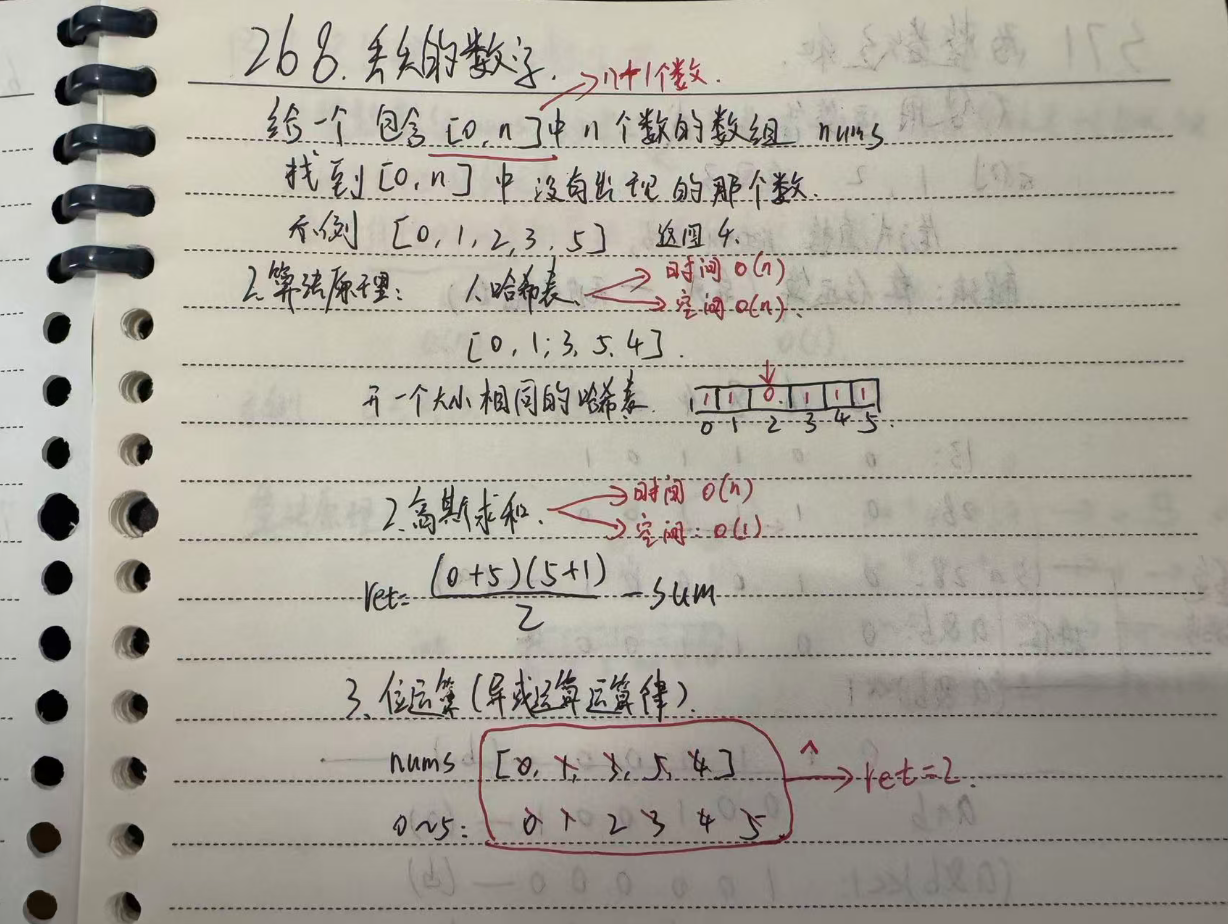 268. 丢失的数字.
→n+1个数.
给一个包含[0,n]中n个数的数组 nums
找到[0,n]中没有出现的那个数.
示例 [0,1,2,3,5] 返回4.
2.算法原理: 1.哈希表.
→时间 O(n)
→空间 O(n).
[0,1,3,5,4].
开一个大小相同的哈希表.
1 1 0 1 1 1
0 1 2 3 4 5
2.高斯求和.
→时间 O(n)
→空间:O(1)
ret= (0+5)(5+1)/2 -sum
3.位运算(异或运算运算律).
nums [0,1,3,5,4] ^→ret=2.
0~5: 0 1 2 3 4 5